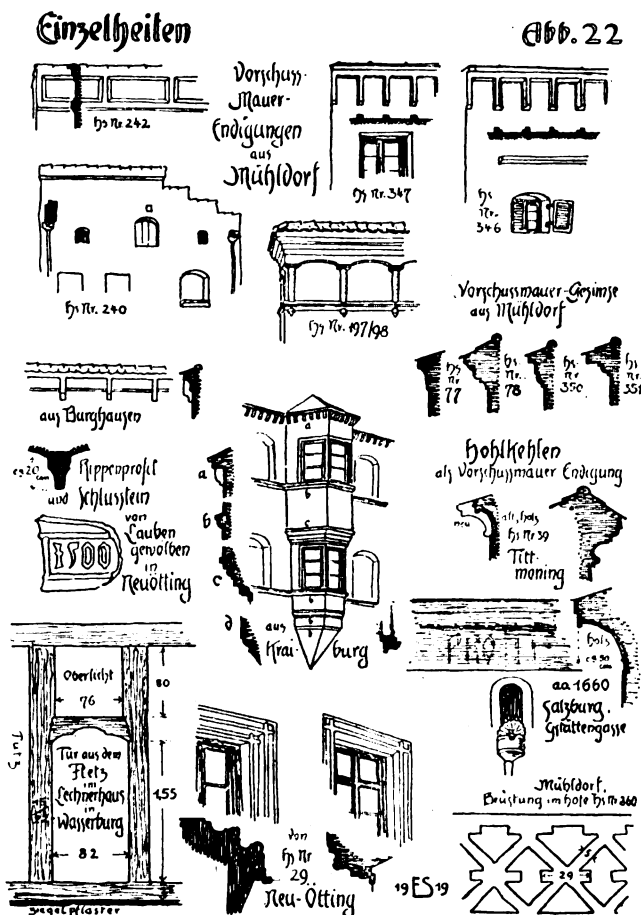 Einzelheiten
Abb. 22
Hs Nr. 242
Vorschuss-
Mauer-
Endigungen
aus
Mühldorf
Hs Nr. 347
Hs
Nr.
346
a
Hs Nr. 240
Hs Nr. 197/98
Vorschussmauer-Gesimse
aus Mühldorf
Hs
Nr
77
Hs.
Nr.
78
Hs.
Nr
350
Hs
Nr.
351
aus Burghausen
ca 20
cm
Rippenprofil
und Schlusstein
von
Lauben
gewölben
in
Neuötting
1500
a
b
c
d
a
b
c
b
b
aus
Kraiburg
Hohlkehlen
als Vorschussmauer Endigung
neu
alt, Holz
Hs Nr 39
Titt-
moning
Holz
ca 90
cm
aa 1660
Salzburg,
Gstättengasse
Oberlicht
76
80
Tür aus dem
Fletz
im
Lechnerhaus
in
Wasserburg
82
1,55
Ziegelpflaster
von
Hs Nr
29.
Neu-Ötting
19 ES 19
Mühldorf,
Brüstung im Hofe Hs Nr 360
5
29